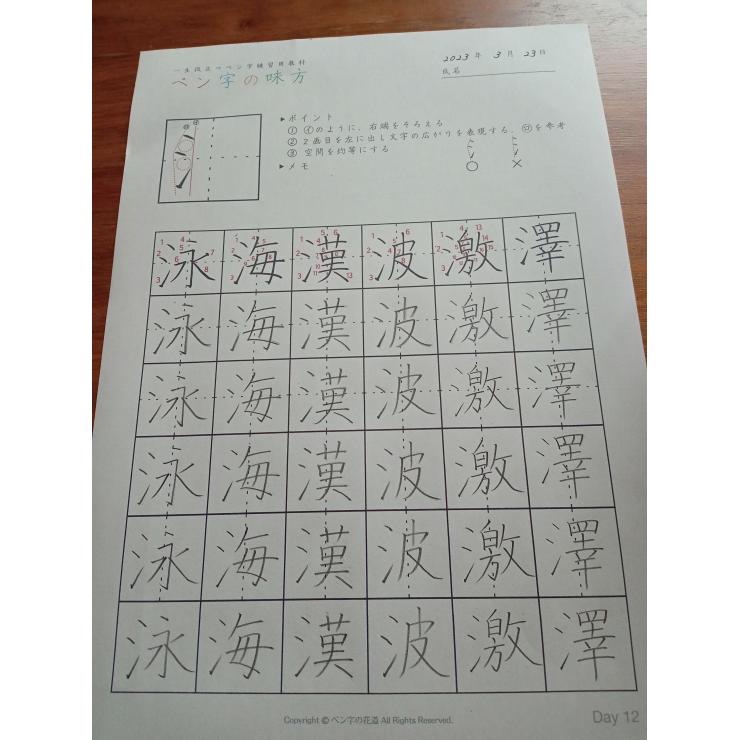 一生役立つペン字練習用教材
ペン字の味方
2023年 3月 23日
氏名
▶ポイント
① ㋑のように、右端をそろえる
② 2画目を左に出し文字の広がりを表現する。㋺を参考
③ 空間を均等にする
▶メモ
○ ×
㋺ ㋑
泳 海 漢 波 激 澤
泳 海 漢 波 激 澤
泳 海 漢 波 激 澤
泳 海 漢 波 激 澤
泳 海 漢 波 激 澤
泳 海 漢 波 激 澤
Copyright © ペン字の花道 All Rights Reserved.
Day 12